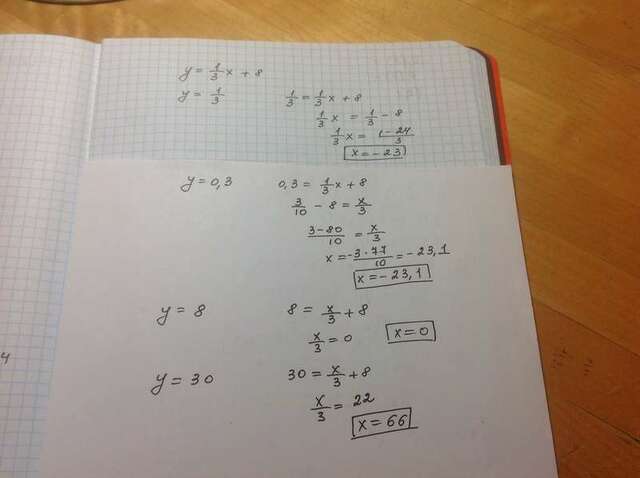 y = 1/3 x + 8
y = 1/3 1/3 = 1/3 x + 8
1/3 x = 1/3 - 8
1/3 x = (1-24)/3
x = -23
y = 0,3 0,3 = 1/3 x + 8
3/10 - 8 = x/3
(3-80)/10 = x/3
x = (-3·77)/10 = -23,1
x = -23,1
y = 8 8 = x/3 + 8
x/3 = 0 x = 0
y = 30 30 = x/3 + 8
x/3 = 22
x = 66